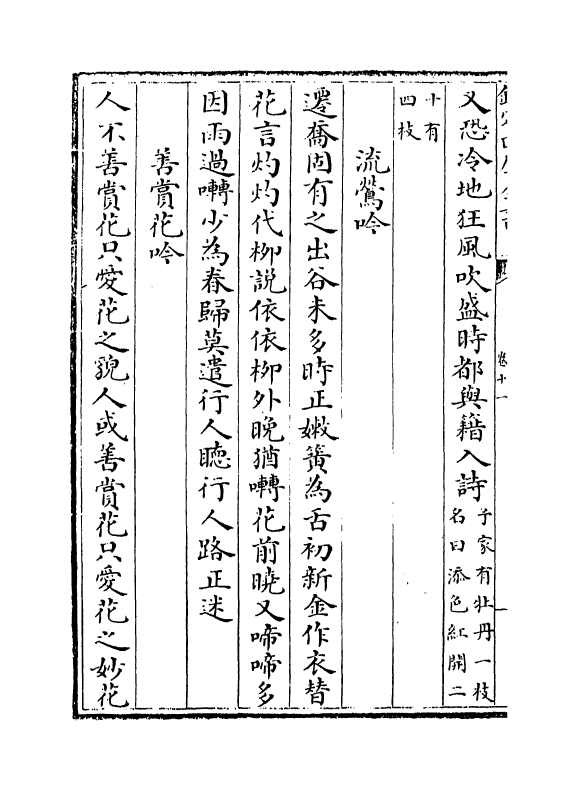 卷十一
又恐冷地狂風吹盛時都與籍入詩子家有牡丹一枝名曰添色紅開二
十有四枝
流鶯吟
遷喬固有之出谷未多時正嫩簧為舌初新金作衣替
花言灼灼代柳説依依柳外晩猶囀花前曉又啼啼多
因雨過囀少為春歸莫遣行人聽行人路正迷
善賞花吟
人不善賞花只愛花之貌人或善賞花只愛花之妙花